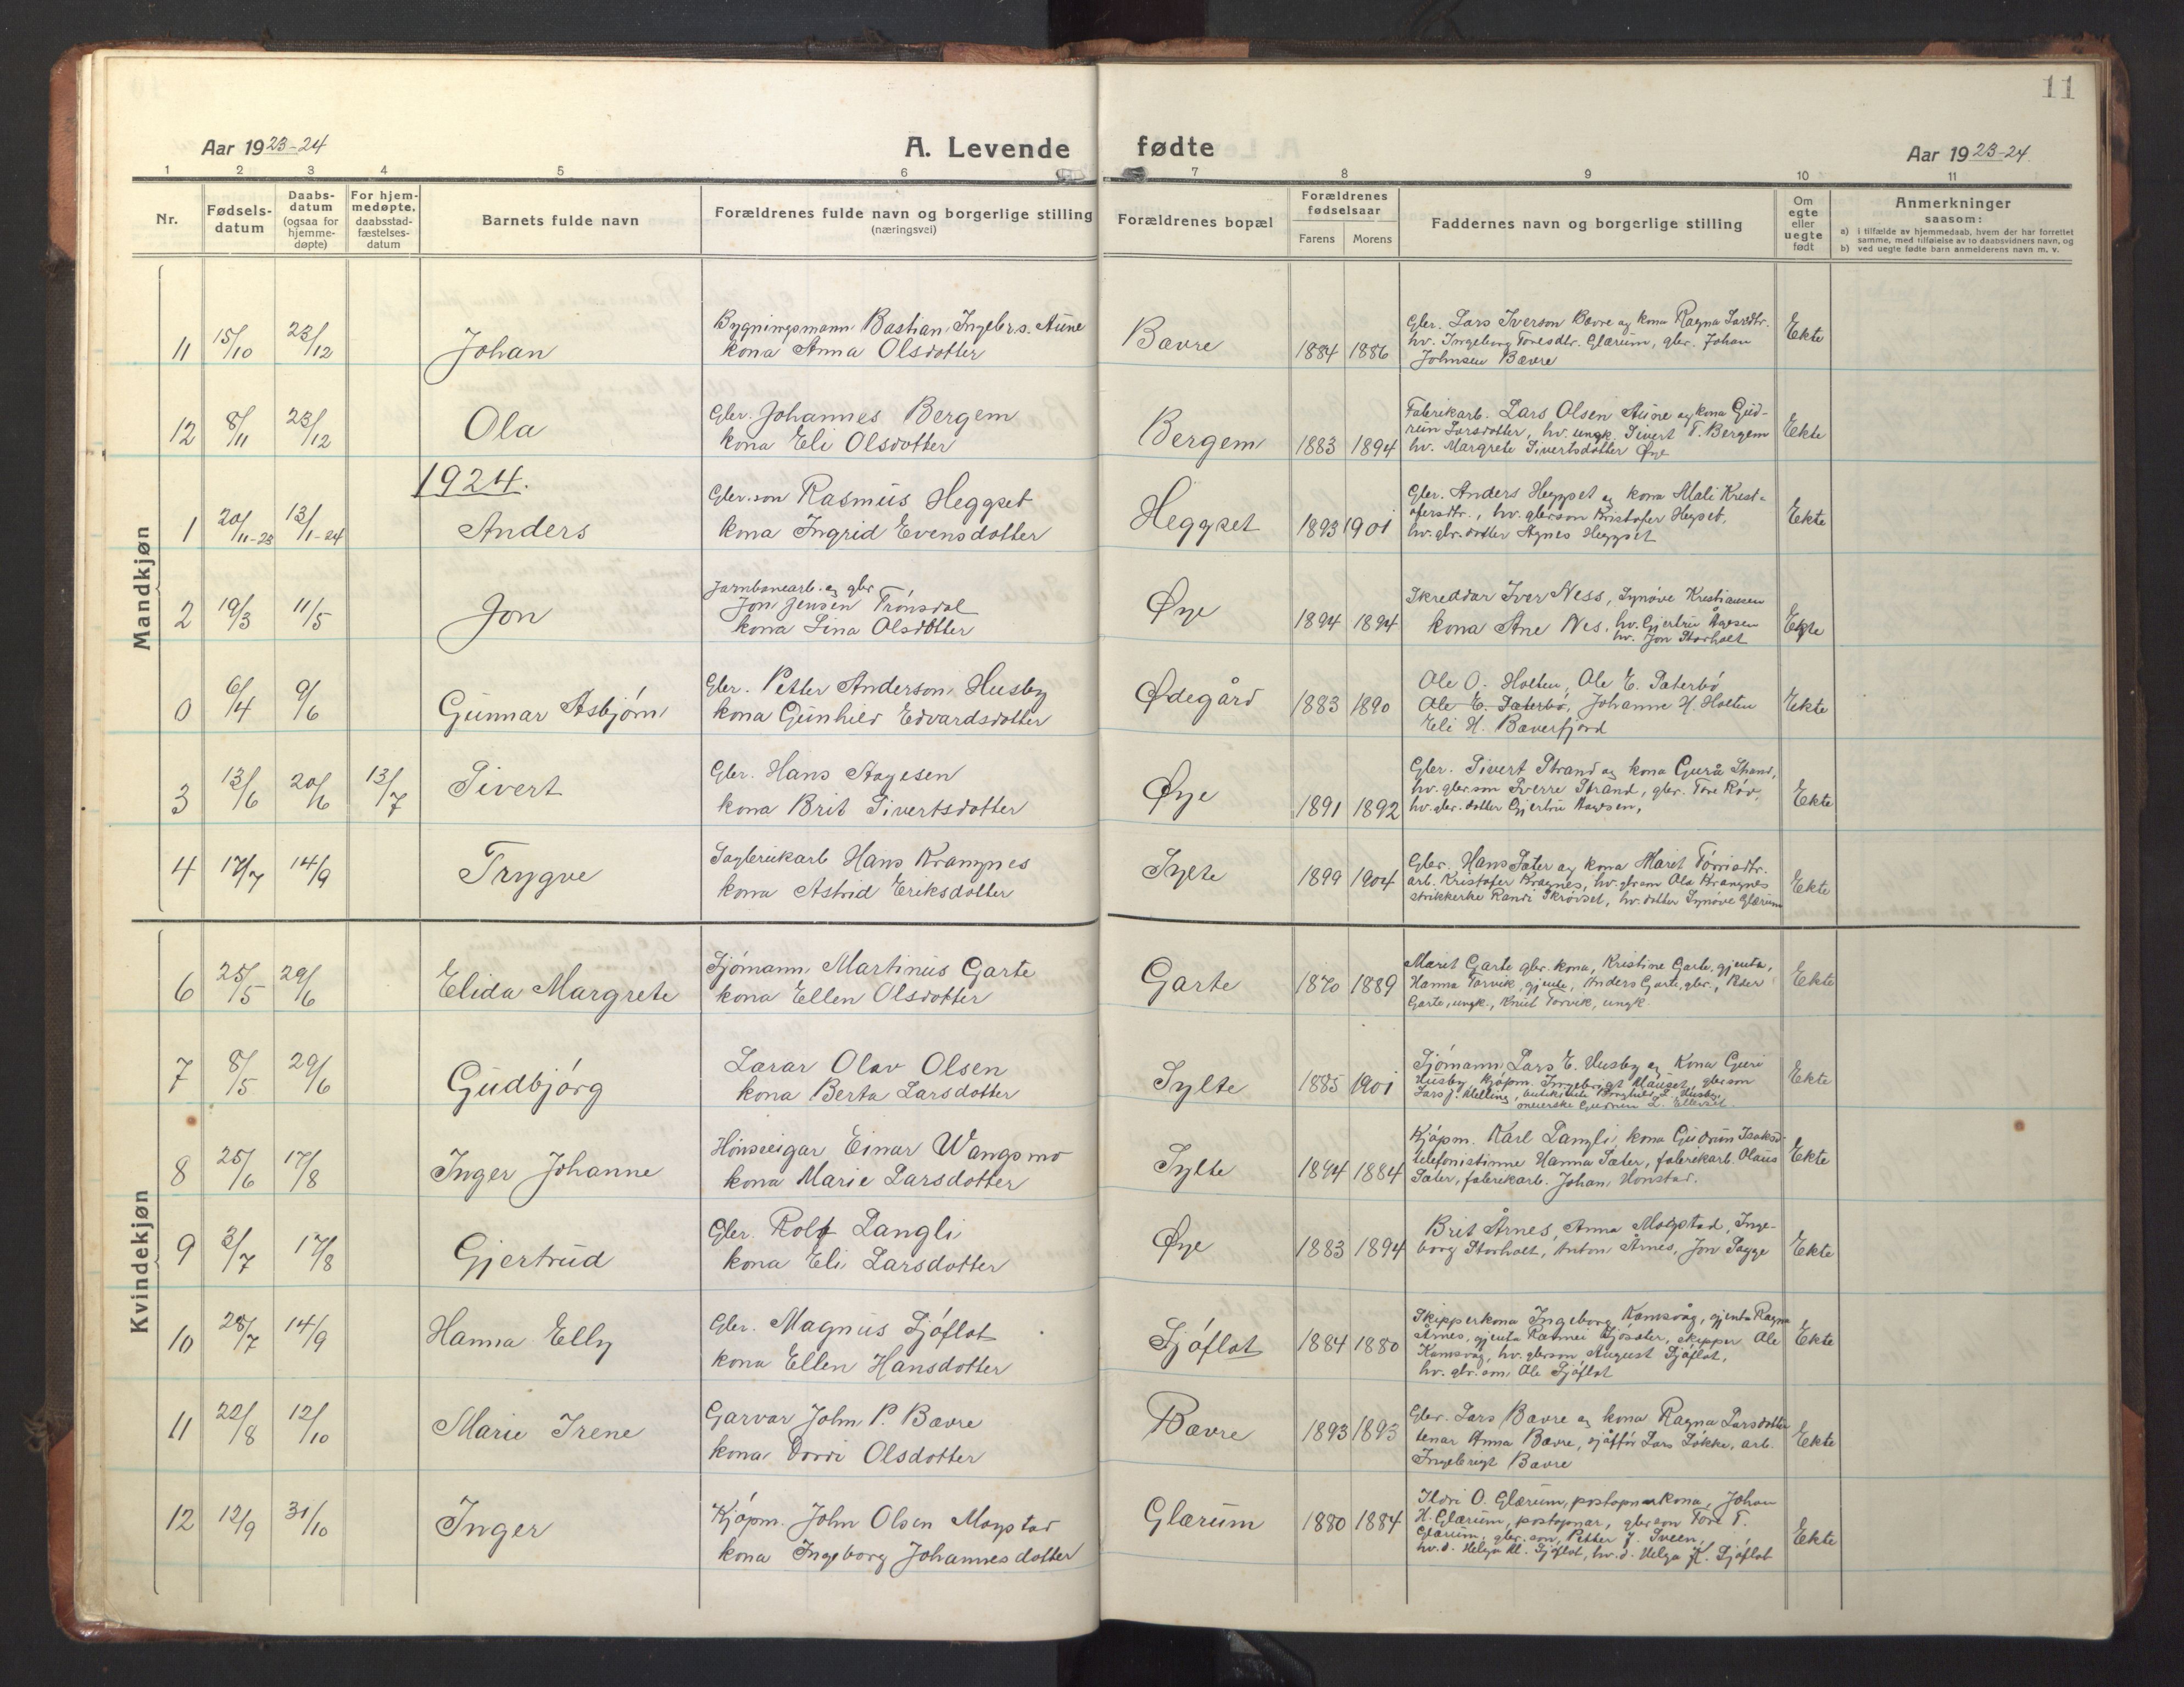 11
Aar 1923-24
A. Levende fødte
Aar 1923-24
1 2 3 4 5 6 7 8 9 10 11
Nr.
Fødsels-
datum
Daabs-
datum
(ogsaa for
hjemme-
døpte)
For hjem-
medøpte,
daabsstad-
fæstelses-
datum
Barnets fulde navn
Forældrenes fulde navn og borgerlige stilling
(næringsvei)
Forældrenes bopæl
Forældrenes
fødselsaar
Farens Morens
Faddernes navn og borgerlige stilling
Om
egte
eller
uegte
født
Anmerkninger
saasom:
a) i tilfælde av hjemmedaab, hvem der har forrettet
samme, med tilføielse av to daabsvidners navn, og
b) ved uegte fødte barn anmelderens navn m. v.
Mandkjøn
11 15/10 23/12 Johan
Bygningsmann Bastian Ingebr.s. Aune
kona Anna Olsdotter
Bævre 1884 1886
Gbr. Lars Iverson Bævre og kona Ragna Larsdtr.
hv. Ingeborg Toresdtr. Glærum, gbr. Johan
Johnsen Bævre
Ekte
12 8/11 23/12 Ola
Gbr. Johannes Bergem
kona Eli Olsdotter
Bergem 1883 1894
Fabrikarb. Lars Olsen Aune og kona Gud-
run Larsdotter, hv. ungk. Sivert T. Bergem
hv. Margrete Sivertsdotter Øye
Ekte
1924.
1 20/11-23 13/1-24 Anders
Gbr.son Rasmus Heggset
kona Ingrid Evensdotter
Heggset 1893 1901
Gbr. Anders Heggset og kona Mali Krist-
ofersdtr., hv. gbrson Kristofer Hegset,
hv. gbr. dotter Agnes Heggset
Ekte
2 19/3 11/5 Jon
Jarnbanearb. og gbr
Jon Jensen Trönsdal
kona Lina Olsdotter
Øye 1894 1894
Skreddar Iver Ness, Synøve Kristiansen
kona Ane Nes, hv. Gjertru Aagesen
hv. Jon Storholt
Ekte
0 6/4 9/6 Gunnar Asbjørn
Gbr. Petter Anderson Husby
kona Gunhild Edvardsdotter
Ødegård 1883 1890
Ole O. Holten, Ole E. Sæterbö
Ole E. Sæterbö, Johanne H. Holten
Eli H. Bæverfjord
Ekte
3 13/6 20/6 13/7 Sivert
Gbr. Hans Aagesen
kona Brit Sivertsdotter
Øye 1891 1892
Gbr. Sivert Strand og kona Gurå Strand,
hv. gbrson Sverre Strand, gbr. Tore Röv,
hv. gbr. dotter Gjertru Aagesen,
Ekte
4 17/7 14/9 Trygve
Sagbrukarb Hans Krangnes
kona Astrid Eriksdotter
Sylte 1899 1904
Gbr. Hans Sæter og kona Marit Törrisdtr.
arb. Kristofer Kragnes, hv. gbrson Ola Krangnes
strikkerke Randi Skrövset, hv. dotter Synöve Glærum
Ekte
Kvindekjøn
6 25/5 29/6 Elida Margrete
Sjömann Martinus Garte
kona Ellen Olsdotter
Garte 1870 1889
Marit Garte gbr. kona, Kristine Garte, gjenta,
Hanna Torvik, gjente, Anders Garte, gbr., Peder
Garte, ungk., Knut Torvik, ungk.
Ekte
7 8/5 29/6 Gudbjörg
Lærar Olav Olsen
kona Berta Larsdotter
Sylte 1885 1901
Sjömann Lars E. Husby og kona Guri
Husby, Kjöpm. Ingebrigt Mauset, gbrson
Lars J. Melling, Husby,
meierske Gudrun L. Ellevset.
Ekte
8 25/6 17/8 Inger Johanne
Hönseeigar Einar Wangsmo
kona Marie Larsdotter
Sylte 1894 1884
Kjöpm. Karl Langli, kona Gudrun Isaksd
telefonistinne Hanna Sæter, fabrikarb. Olaus
Sæter, fabrikarb. Johan Honstad.
Ekte
9 3/7 17/8 Gjertrud
Gbr. Rolf Langli
kona Eli Larsdotter
Øye 1883 1894
Brit Årnes, Anna Mogstad, Inge-
borg Storholt, Anton Årnes, Jon Sagge
Ekte
10 28/7 14/9 Hanna Elly
Gbr. Magnus Sjöflot
kona Ellen Hansdotter
Sjöflot 1884 1880
Skipperkona Ingeborg Kamsvåg, gjenta Ragna
Årnes, gjenta Ranvei Sjösæter, skipper Ole
Kamsvåg, hv. gbrson August Sjöflot,
hv. gbr. son Ole Sjöflot
Ekte
11 22/8 12/10 Marie Irene
Garvar John P. Bævre
kona Dordi Olsdotter
Bævre 1893 1893
Gbr. Lars Bævre og kona Ragna Larsdotter
tenar Anna Bævre, sjåför Lars Løkke, arb.
Ingebrigt Bævre
Ekte
12 12/9 31/10 Inger
Kjöpm. John Olsen Mogstad
kona Ingeborg Johannesdotter
Glærum 1880 1884
Ildri O. Glærum, postopnarkona, Johan
H. Glærum, postopnar, gbrson Tore T.
Glærum, gbr. son, Petter J. Sveen,
hv. d. Helga M. Sjöflot, hv. d. Helga K. Sjöflot
Ekte